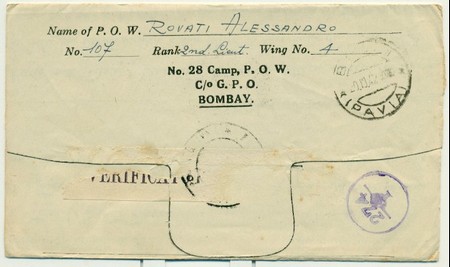 Name of P. O. W. ROVATI ALESSANDRO
No. 107 Rank 2nd Lieut. Wing No. 4
No. 28 Camp, P. O. W.
C/o G. P. O.
BOMBAY.
(PAVIA)
VERIFICAT